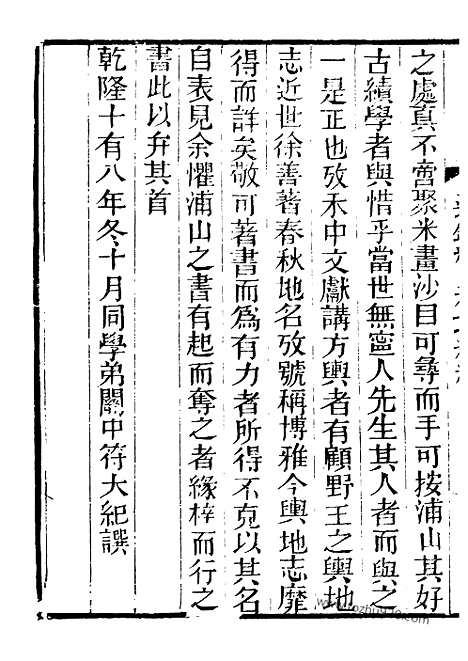 之處真不啻聚米畫沙目可尋而手可按浦山其好
古績學者與惜乎當世無寍人先生其人者而與之
一是正也攷禾中文獻講方輿者有顧野王之輿地
志近世徐善著春秋地名攷號稱博雅今輿地志靡
得而詳矣敬可著書而爲有力者所得不克以其名
自表見余懼浦山之書有起而奪之者緣梓而行之
書此以弁其首
乾隆十有八年冬十月同學弟關中符大紀譔